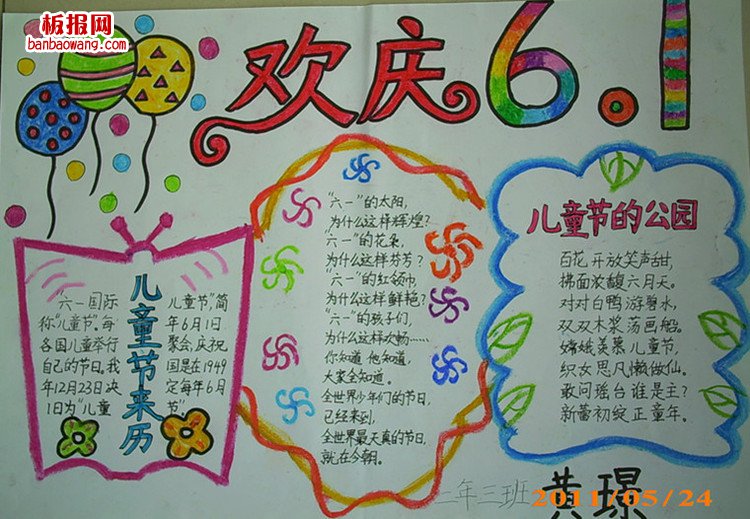 板报网
banbaowang.com
欢庆6.1
儿童节来历
"六一国际儿童节"简
称"儿童节",每年6月1日
各国儿童举行聚会,庆祝
自己的节日。我国是在1949
年12月23日决定每年6月
1日为"儿童节"
"六一"的太阳,
为什么这样辉煌?
"六一"的花朵,
为什么这样芬芳?
"六一"的红领巾
为什么这样鲜艳?
"六一"的孩子们,
为什么这样欢畅……
你知道 他知道,
大家全知道。
全世界少年们的节日,
已经来到,
全世界最天真的节日,
就在今朝。
儿童节的公园
百花开放笑声甜,
拂面浓馥六月天。
对对白鸭游碧水,
双双木桨荡画船。
嫦娥羡慕儿童节,
织女思凡懒做仙。
敢问瑶台谁是主?
新蕾初绽正童年。
二年三班 黄璟
2011/05/24